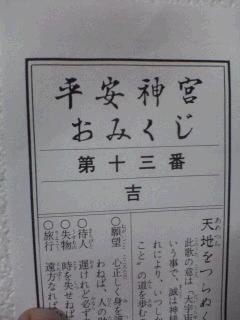 平安神宮
おみくじ
第十三番
吉
天地をつらぬく
此歌の意は「大宇宙
いう事で、誠は神様
れにより、いつしよ
こと」の道を歩む
○願望 心正しく身を
わねば、人の助
○待人 遅けれど必ず
○失物 時を失せねば
○旅行 遠方なれば